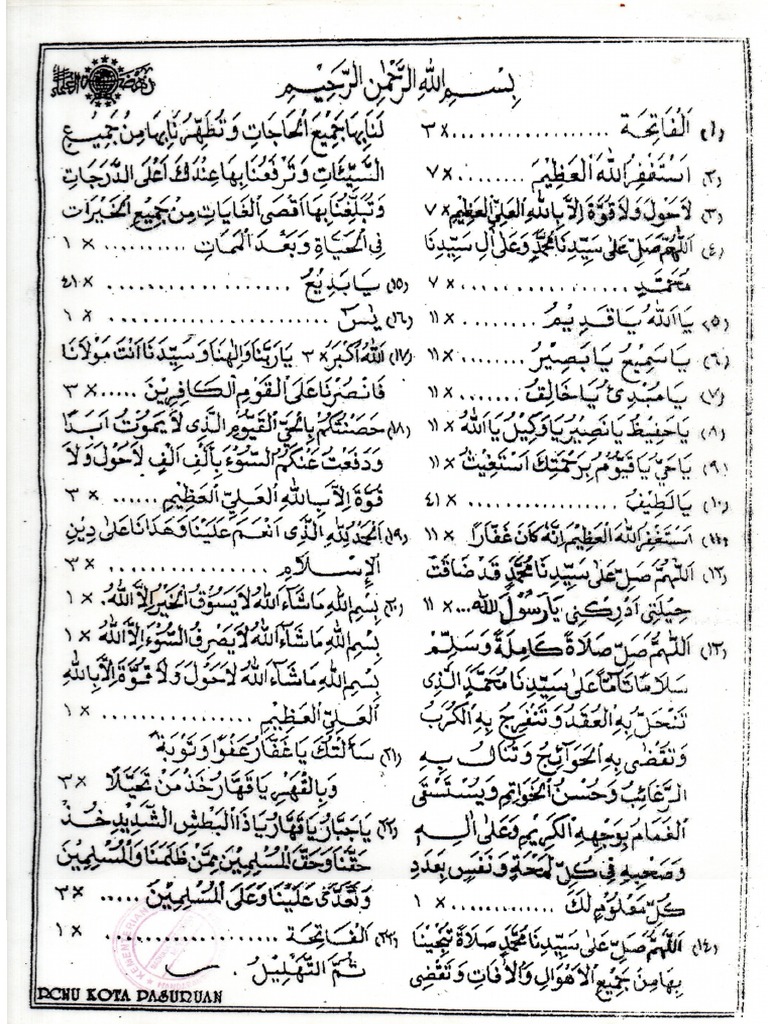 نهضة العلماء
بِسْمِ اللهِ الرَّحْمٰنِ الرَّحِيْمِ
(١) اَلْفَاتِحَة ................. × ٣
(٢) اَسْتَغْفِرُ اللهَ الْعَظِيْمَ ........ × ٧
(٣) لاَحَوْلَ وَلاَ قُوَّةَ اِلاَّ بِاللهِ الْعَلِيِّ الْعَظِيْمِ × ٧
(٤) اَللّٰهُمَّ صَلِّ عَلىٰ سَيِّدِنَا مُحَمَّدٍ وَعَلىٰ اٰلِ سَيِّدِنَا
مُحَمَّدٍ ................ × ٧
(٥) يَا اَللهُ يَا قَدِيْمُ ........ × ١١
(٦) يَا سَمِيْعُ يَا بَصِيْرُ ........ × ١١
(٧) يَا مُبْدِئُ يَا خَالِقُ ........ × ١١
(٨) يَا حَفِيْظُ يَا نَصِيْرُ يَا وَكِيْلُ يَا اَللهُ × ١١
(٩) يَا حَيُّ يَا قَيُّوْمُ بِرَحْمَتِكَ اَسْتَغِيْثُ × ١١
(١٠) يَا لَطِيْفُ ................ × ٤١
(١١) اَسْتَغْفِرُ اللهَ الْعَظِيْمَ اِنَّهُ كَانَ غَفَّارًا × ١١
(١٢) اَللّٰهُمَّ صَلِّ عَلىٰ سَيِّدِنَا مُحَمَّدٍ قَدْ ضَاقَتْ
حِيْلَتِي اَدْرِكْنِي يَا رَسُوْلَ اللهِ... × ١١
(١٣) اَللّٰهُمَّ صَلِّ صَلاَةً كَامِلَةً وَسَلِّمْ
سَلاَمًا تَامًّا عَلىٰ سَيِّدِنَا مُحَمَّدٍ الَّذِى
تَنْحَلُّ بِهِ الْعُقَدُ وَتَنْفَرِجُ بِهِ الْكُرَبُ
وَتُقْضَى بِهِ الْحَوَائِجُ وَتُنَالُ بِهِ
الرَّغَائِبُ وَحُسْنُ الْخَوَاتِمِ وَيُسْتَسْقَى
الْغَمَامُ بِوَجْهِهِ الْكَرِيْمِ وَعَلىٰ اٰلِهِ
وَصَحْبِهِ فِى كُلِّ لَمْحَةٍ وَنَفَسٍ بِعَدَدِ
كُلِّ مَعْلُوْمٍ لَكَ ............ × ١
(١٤) اَللّٰهُمَّ صَلِّ عَلىٰ سَيِّدِنَا مُحَمَّدٍ صَلاَةً تُنْجِيْنَا
بِهَا مِنْ جَمِيْعِ اْلاَهْوَالِ وَاْلاٰفَاتِ وَتَقْضِى
لَنَا بِهَا جَمِيْعَ الْحَاجَاتِ وَتُطَهِّرُنَا بِهَا مِنْ جَمِيْعِ
السَّيِّئَاتِ وَتَرْفَعُنَا بِهَا عِنْدَكَ اَعْلَى الدَّرَجَاتِ
وَتُبَلِّغُنَا بِهَا اَقْصَى الْغَايَاتِ مِنْ جَمِيْعِ الْخَيْرَاتِ
فِى الْحَيَاةِ وَبَعْدَ الْمَمَاتِ .......... × ١
(١٥) يَا بَدِيْعُ .................. × ٤١
(١٦) يٰسۤ .................. × ١
(١٧) اَللهُ اَكْبَرُ × ٣ يَا رَبَّنَا وَاِلٰهَنَا وَسَيِّدَنَا اَنْتَ مَوْلاَنَا
فَانْصُرْنَا عَلَى الْقَوْمِ الْكَافِرِيْنَ ..... × ٣
(١٨) حَصَنْتُكُمْ بِالْحَيِّ الْقَيُّوْمِ الَّذِى لاَ يَمُوْتُ اَبَدًا
وَدَفَعْتُ عَنْكُمُ السُّوْءَ بِأَلْفِ اَلْفِ لاَحَوْلَ وَلاَ
قُوَّةَ اِلاَّ بِاللهِ الْعَلِيِّ الْعَظِيْمِ ...... × ٣
(١٩) اَلْحَمْدُ لِلّٰهِ الَّذِى اَنْعَمَ عَلَيْنَا وَهَدَانَا عَلىٰ دِيْنِ
اْلاِسْلاَمِ ................ × ٣
(٢٠) بِسْمِ اللهِ مَا شَاءَ اللهُ لاَ يَسُوْقُ الْخَيْرَ اِلاَّ اللهُ. × ١
بِسْمِ اللهِ مَا شَاءَ اللهُ لاَ يَصْرِفُ السُّوْءَ اِلاَّ اللهُ × ١
بِسْمِ اللهِ مَا شَاءَ اللهُ لاَحَوْلَ وَلاَ قُوَّةَ اِلاَّ بِاللهِ
الْعَلِيِّ الْعَظِيْمِ ................ × ١
(٢١) سَأَلْتُكَ يَا غَفَّارُ عَفْوًا وَتَوْبَةً
وَبِالْقَهْرِ يَا قَهَّارُ خُذْ مَنْ تَحَيَّلاَ × ٣
(٢٢) يَا جَبَّارُ يَا قَهَّارُ يَا ذَا الْبَطْشِ الشَّدِيْدِ خُذْ
حَقَّنَا وَحَقَّ الْمُسْلِمِيْنَ مِمَّنْ ظَلَمَنَا وَالْمُسْلِمِيْنَ
وَتَعَدَّى عَلَيْنَا وَعَلَى الْمُسْلِمِيْنَ ..... × ٣
(٢٣) اَلْفَاتِحَة .................. × ١
تَمَّ التَّهْلِيْلُ .
PCNU KOTA PASURUAN